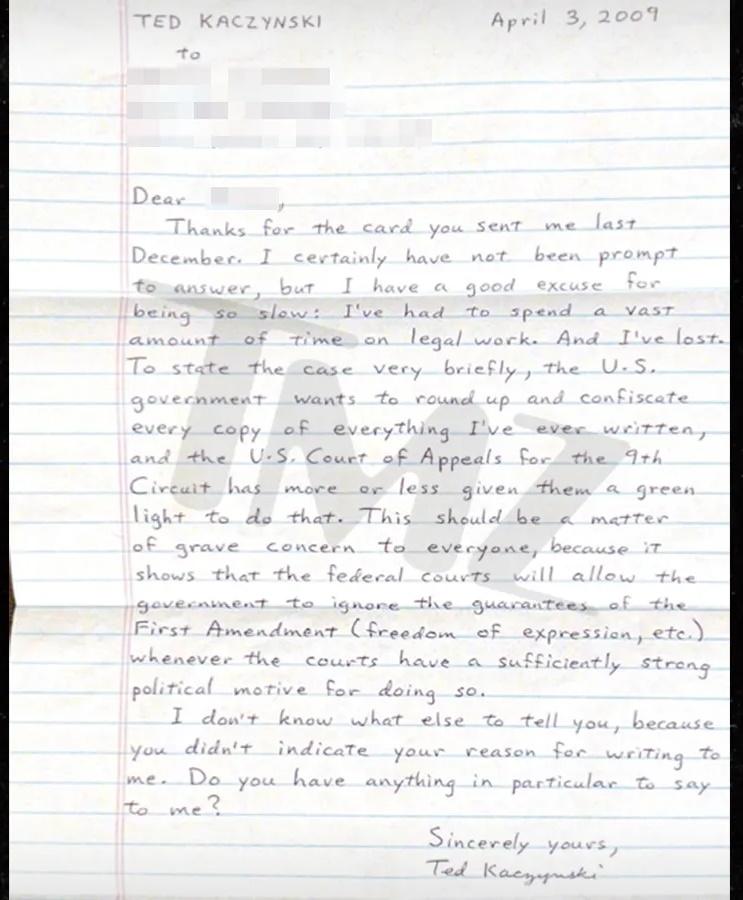 TED KACZYNSKI April 3, 2009
to
Dear ,
Thanks for the card you sent me last
December. I certainly have not been prompt
to answer, but I have a good excuse for
being so slow: I've had to spend a vast
amount of time on legal work. And I've lost.
To state the case very briefly, the U.S.
government wants to round up and confiscate
every copy of everything I've ever written,
and the U.S. Court of Appeals for the 9th
Circuit has more or less given them a green
light to do that. This should be a matter
of grave concern to everyone, because it
shows that the federal courts will allow the
government to ignore the guarantees of the
First Amendment (freedom of expression, etc.)
whenever the courts have a sufficiently strong
political motive for doing so.
I don't know what else to tell you, because
you didn't indicate your reason for writing to
me. Do you have anything in particular to say
to me?
Sincerely yours,
Ted Kaczynski
TMZ